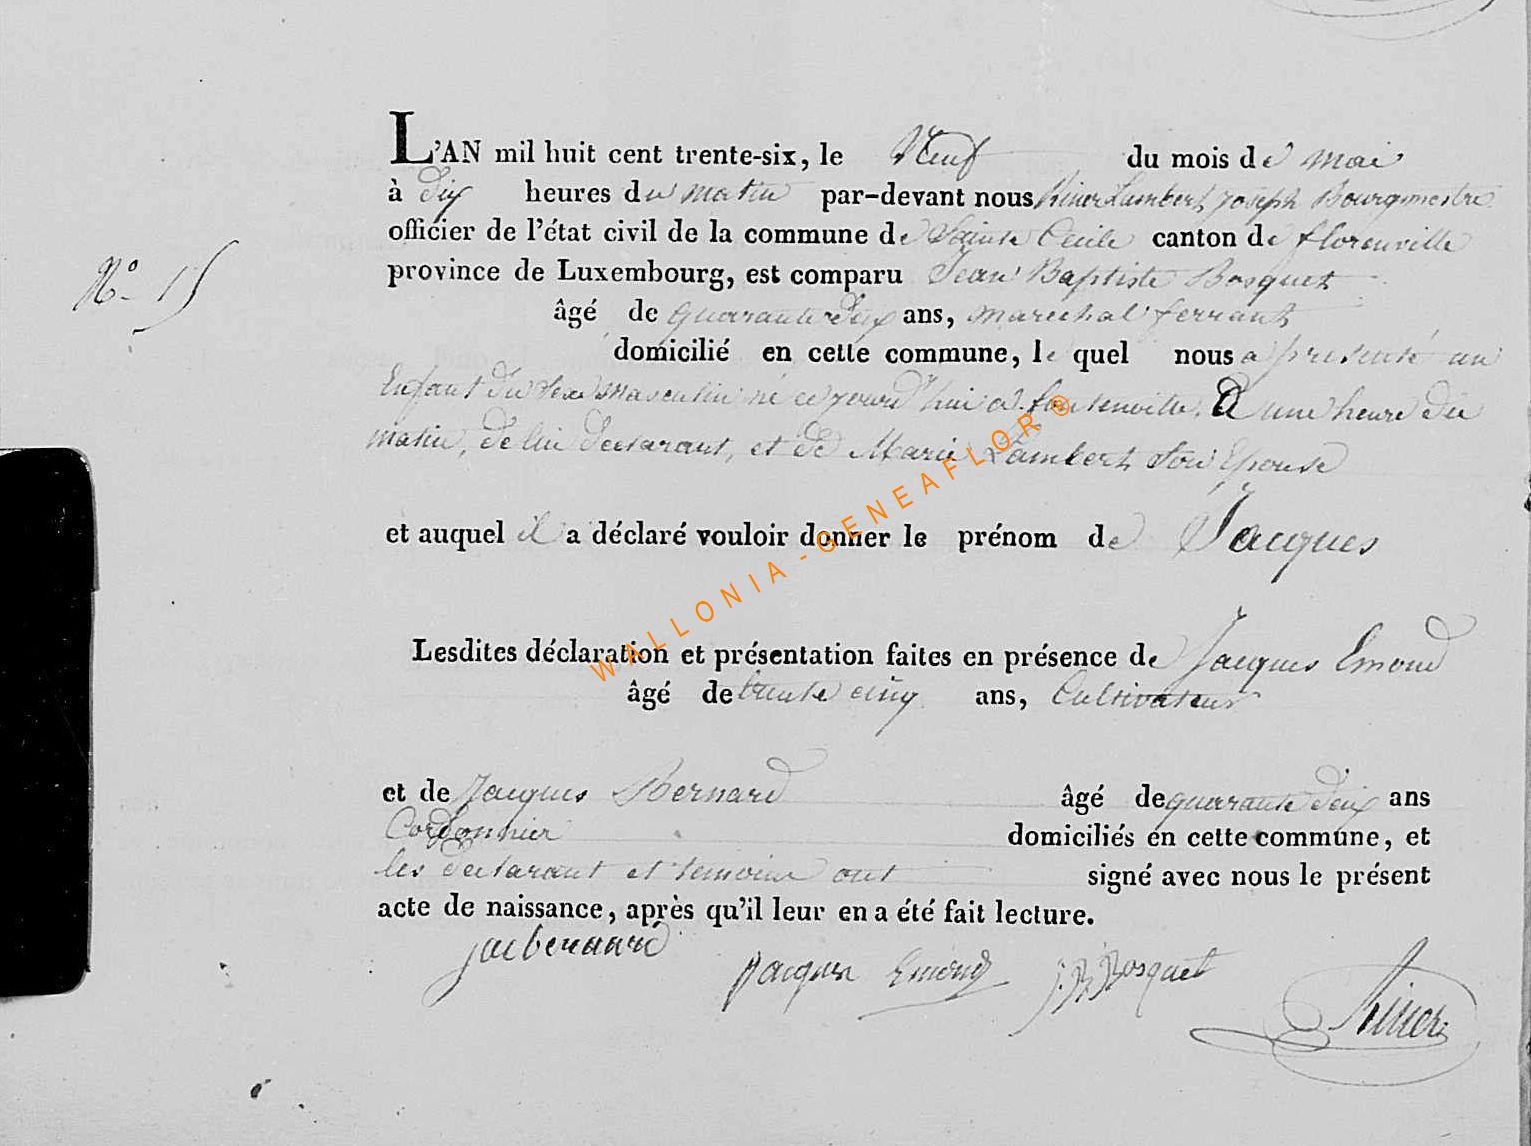 L'AN mil huit cent trente-six, le Neuf du mois de mai
à dix heures du matin par-devant nous Riner Lambert Joseph Bourgmestre
officier de l'état civil de la commune de Sainte Cecile canton de florenville
N° 15
province de Luxembourg, est comparu Jean Baptiste Bosquet
âgé de quarante deux ans, marechal ferrant
domicilié en cette commune, le quel nous a presenté un
Enfant du sexe masculin né ce jourd'hui a fontenoille. A une heure du
matin, de lui declarant, et de Marie Lambert son Epouse
et auquel il a déclaré vouloir donner le prénom de Jacques
WALLONIA-GENEAFLOR®
Lesdites déclaration et présentation faites en présence de Jacques Emond
âgé de trente cinq ans, Cultivateur
et de Jacques Bernard âgé de quarante deux ans
Cordonnier domiciliés en cette commune, et
les declarant et temoins ont signé avec nous le présent
acte de naissance, après qu'il leur en a été fait lecture.
jac bernard Jacques Emond J.B. Bosquet Riner